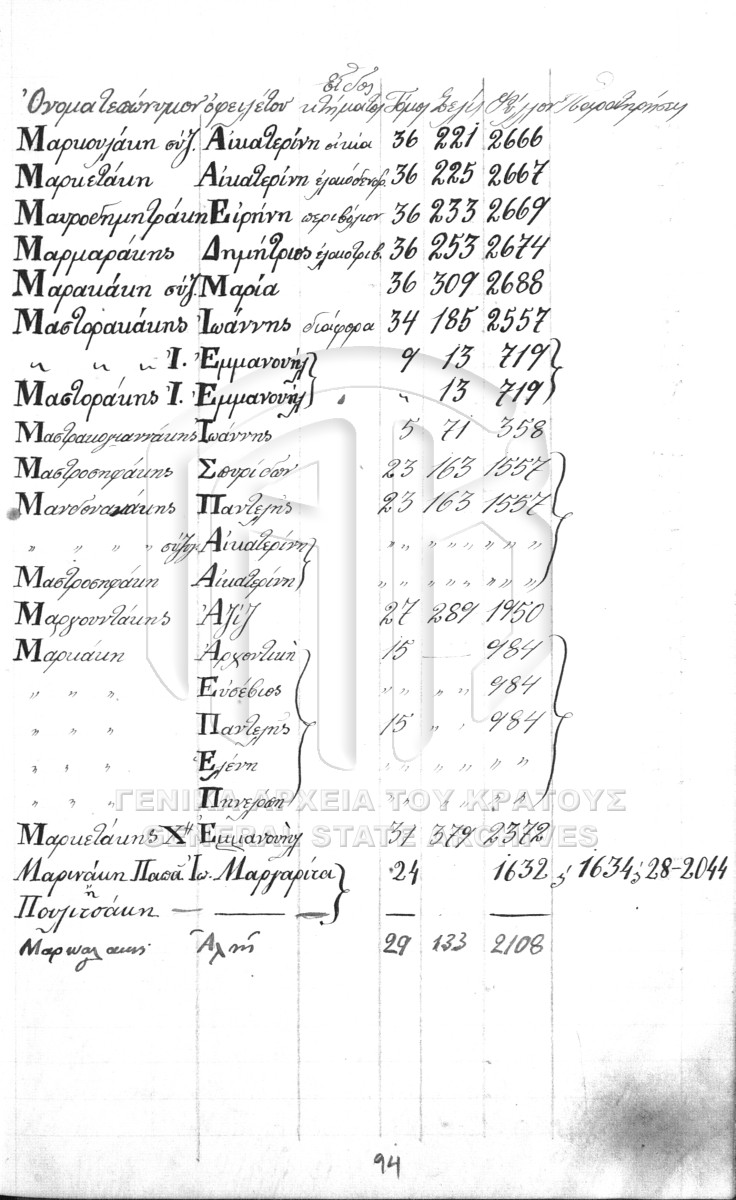 Εἶδος
Ὀνοματεπώνυμον ὀφειλέτου κτήματος Τόμος Σελὶς Φύλλον Παρατηρήσεις
Μαρκουλάκη σύζ. Αἰκατερίνη οἰκία 36 221 2666
Μαρκετάκη Αἰκατερίνη ἐλαιόδενδρ. 36 225 2667
Μαυροδημητράκη Εἰρήνη περιβόλιον 36 233 2669
Μαρμαράκης Δημήτριος ἐλαιοτριβ. 36 253 2674
Μαρακάκη σύζ. Μαρία 36 309 2688
Μαστορακάκης Ἰωάννης διάφορα 34 185 2557
〃 〃 〃 Ἰ. Ἐμμανουὴλ 9 13 719
Μαστοράκης Ἰ. Ἐμμανουὴλ 〃 13 719
Μαστρακογιαννάκης Ἰωάννης 5 71 358
Μαστροσηφάκης Σπυρίδων 23 163 1557
Μανουσακάκης Παντελῆς 23 163 1557
〃 〃 〃 〃 σύζυγ. Αἰκατερίνη 〃 〃 〃 〃 〃 〃 〃 〃
Μαστροσηφάκη Αἰκατερίνη 〃 〃 〃 〃 〃 〃 〃 〃
Μαργουντάκης Ἀζίζ 27 289 1950
Μαρκάκη Ἀρχοντικὴ 15 — 984
〃 〃 〃 Εὐσέβιος 〃 〃 〃 〃 984
〃 〃 〃 Παντελῆς 15 〃 〃 984
〃 〃 〃 Ἑλένη 〃 〃 〃 〃 〃 〃 〃
〃 〃 〃 Πηνελόπη 〃 〃 〃 〃 〃 〃 〃
ΓΕΝΙΚΑ ΑΡΧΕΙΑ ΤΟΥ ΚΡΑΤΟΥΣ
Μαρκετάκης Χ" Ἐμμανουὴλ 37 379 2372
GENERAL STATE ARCHIVES
Μαρινάκη Πασᾶ Ἰω. Μαργαρίτα 24 1632 ἢ 1634 ἢ 28-2044
ἢ
Πουλιτσάκη — — — — —
Ἀλῆς 29 133 2108
94